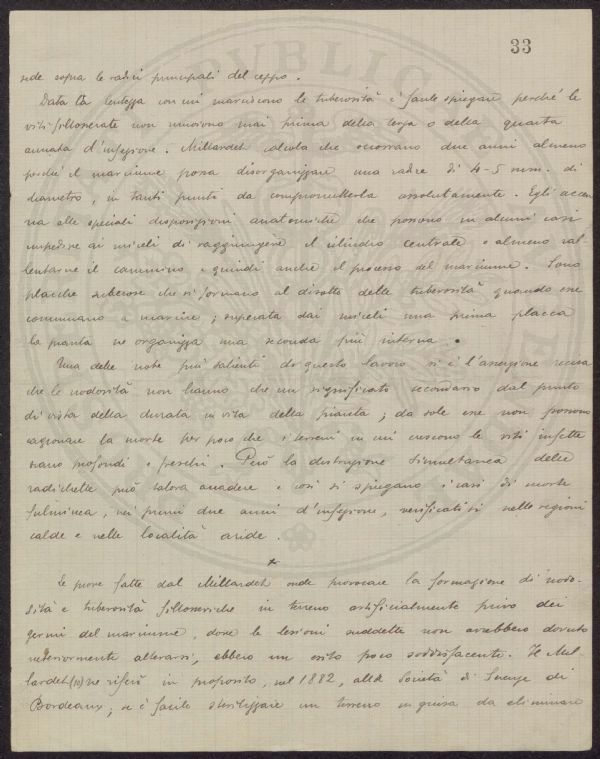 33
sede sopra le radici principali del ceppo.
Data la lentezza con cui marciscono le tuberosità è facile spiegare perché le
viti fillosserate non muoiono mai prima della terza o della quarta
annata d'infezione. Millardet calcola che occorrano due anni almeno
perché il marciume possa disorganizzare una radice di 4-5 mm. di
diametro, in tanti punti da comprometterla assolutamente. Egli accen
na alle speciali disposizioni anatomiche che possono in alcuni casi
impedire ai miceli di raggiungere il cilindro centrale o almeno ral-
lentarne il cammino e quindi anche il processo del marciume. Sono
placche suberose che si formano al disotto delle tuberosità quando esse
cominciano a marcire; superata dai miceli una prima placca
la pianta ne organizza una seconda più interna.
Una delle note più salienti di questo lavoro si è l'asserzione recisa
che le nodosità non hanno che un significato secondario dal punto
di vista della durata in vita della pianta; da sole esse non possono
cagionare la morte per poco che i terreni in cui crescono le viti infette
siano profondi e freschi. Però la distruzione simultanea delle
radichette può talora accadere e così si spiegano i casi di morte
fulminea, nei primi due anni d'infezione, verificatisi nelle regioni
calde e nelle località aride.
Le prove fatte dal Millardet onde provocare la formazione di nodo-
sità e tuberosità fillosseriche in terreno artificialmente privo dei
germi del marciume, dove le lesioni suddette non avrebbero dovuto
ulteriormente alterarsi, ebbero un esito poco soddisfacente. Il Mil-
lardet (10) ne riferì in proposito, nel 1882, alla Società di Scienze di
Bordeaux; se è facile sterilizzare un terreno in guisa da eliminare